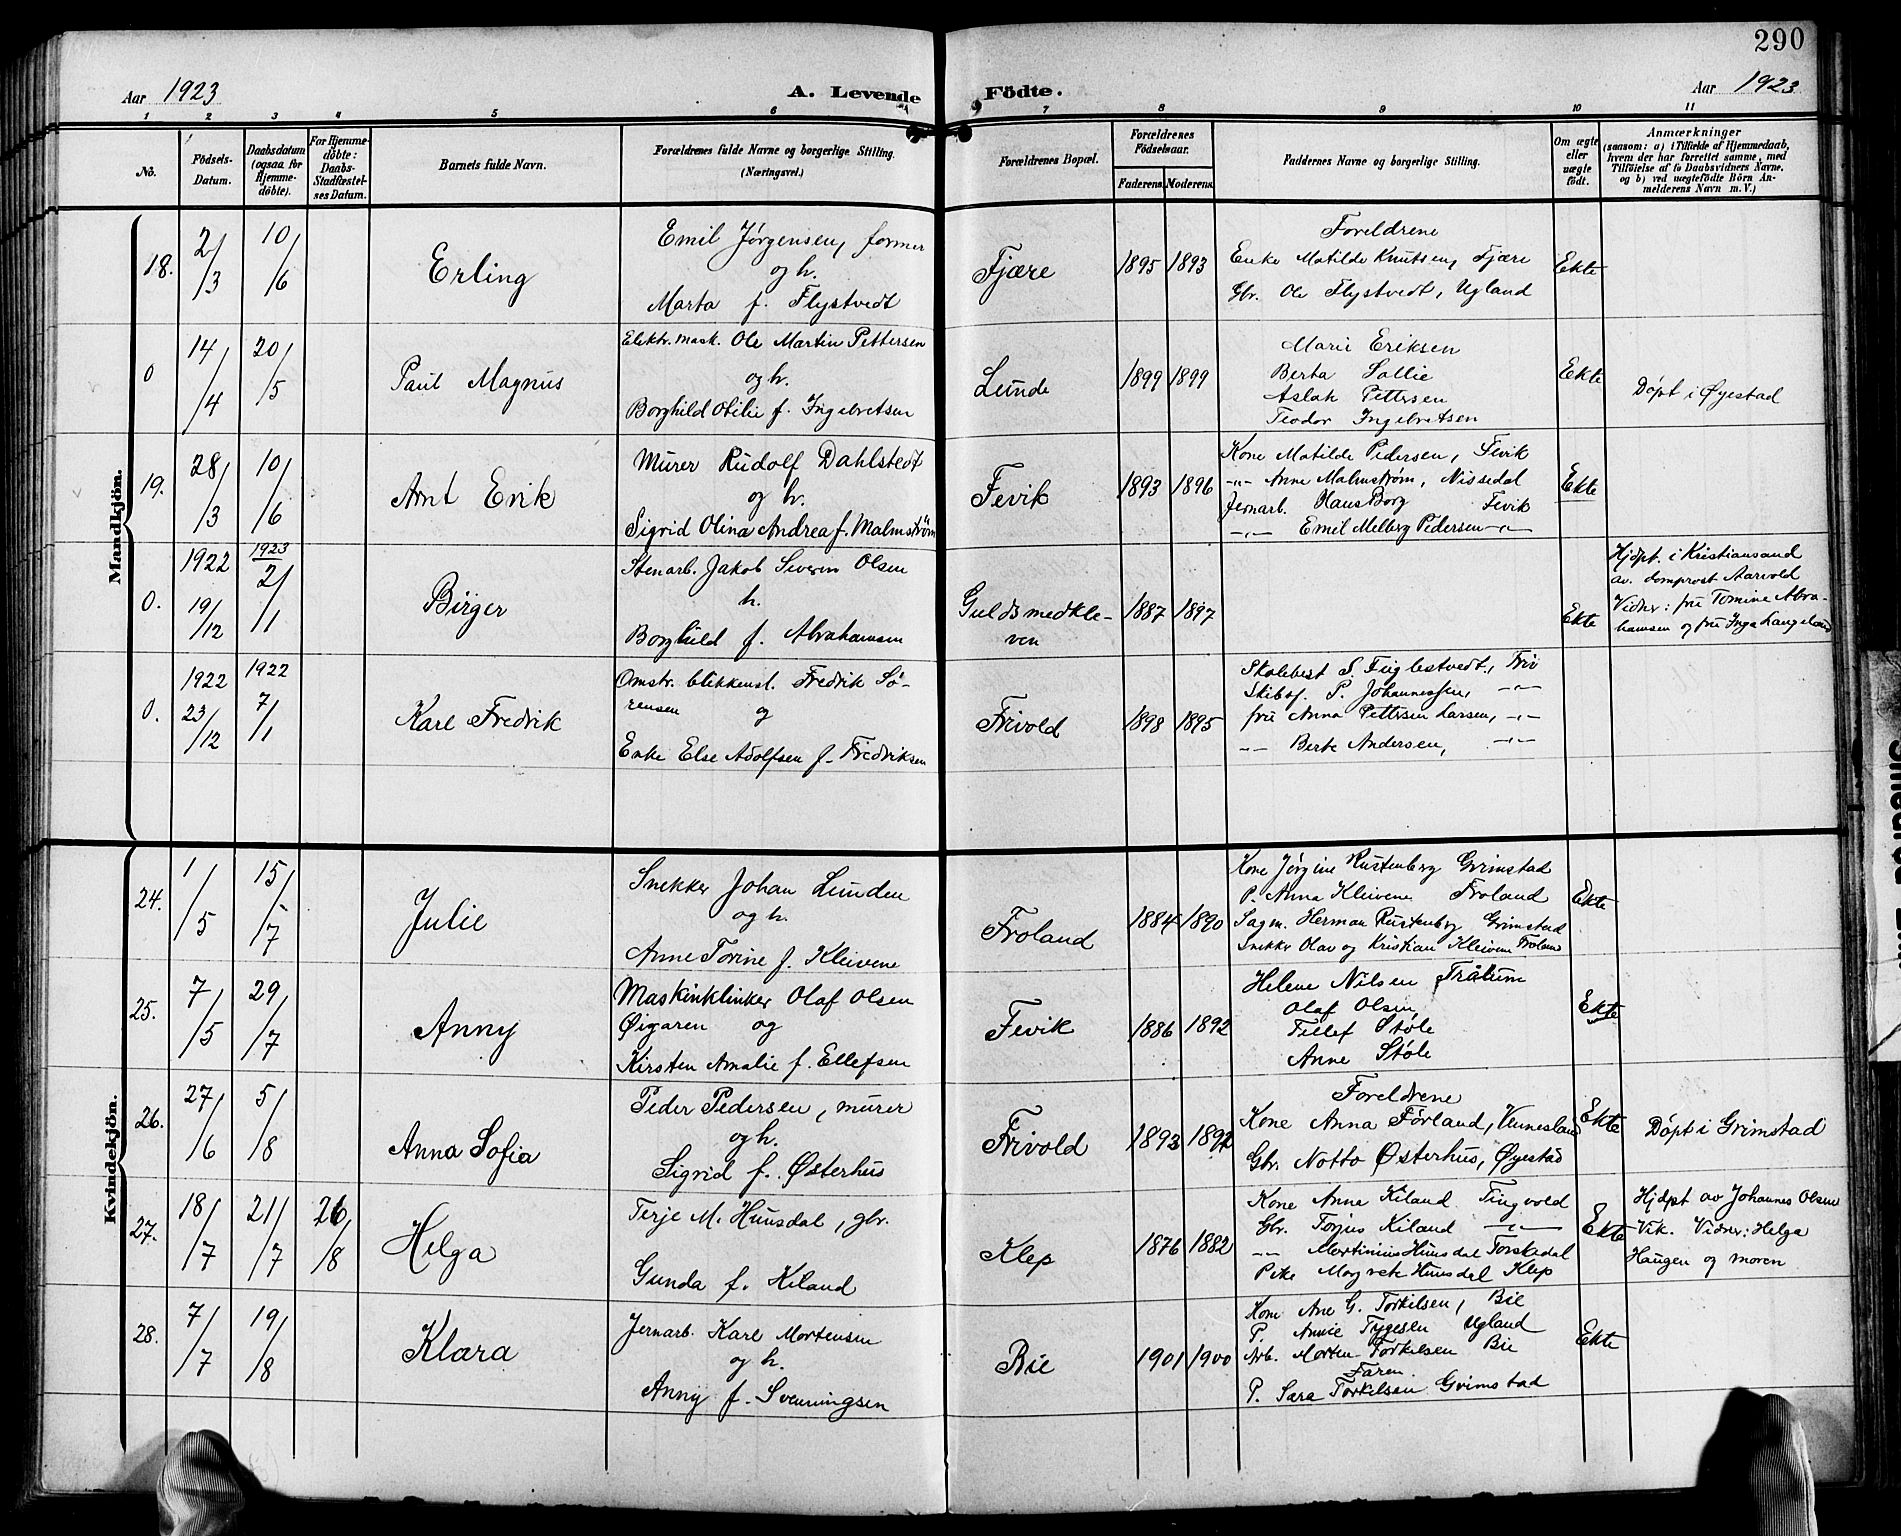 290
Aar 1923
A. Levende Födte.
Aar 1923
1 2 3 4 5 6 7 8 9 10 11
No.
Födsels-
Datum.
Daabsdatum
(ogsaa for
Hjemme-
döbte).
For Hjemme-
döbte:
Daabs-
Stadfæstel-
ses Datum.
Barnets fulde Navn.
Forældrenes fulde Navne og borgerlige Stilling.
(Næringsvei.)
Forældrenes Bopæl.
Forældrenes
Födselsaar.
Faderens. Moderens.
Faddernes Navne og borgerlige Stilling.
Om ægte
eller
uægte
födt.
Anmærkninger
(saasom: a) i Tilfælde af Hjemmedaab,
hvem der har forrettet samme, med
Tilföielse af to Daabsvidners Navne,
og b) ved uægtefödte Börn An-
melderens Navn m. V.)
Mandkjön.
18.
2/3
10/6
Erling
Emil Jørgensen, former
og h.
Marta f. Flystvedt
Fjære
1895 1893
Foreldrene
Enke Matilde Knutsen, Fjære
Gbr. Ole Flystvedt, Ugland
Ekte
0
14/4
20/5
Paul Magnus
Elektr. mask. Ole Martin Pettersen
og h.
Borghild Otilie f. Ingebretsen
Lunde
1899 1899
Marie Eriksen
Berta Sallie
Aslak Pettersen
Teodor Ingebretsen
Ekte
Døpt i Øyestad
19.
28/3
10/6
Arnt Erik
Murer Rudolf Dahlstedt
og h.
Sigrid Olina Andrea f. Malmström
Fevik
1893 1896
Kone Matilde Pedersen, Fevik
-"- Anne Malmstrøm, Nissedal
Jernarb. Hans Borg Fevik
-"- Emil Melberg Pedersen -"-
Ekte
0.
1922
19/12
1923
2/1
Birger
Stenarb. Jakob Severin Olsen
h.
Borghild f. Abrahamsen
Guldsmedkle-
ven
1887 1897
Ekte
Hjdpt. i Kristiansand
av. domprost Aarvold
Vidner: fru Tomine Abra-
hamsen og fru Inga Langeland
0.
1922
23/12
1922
7/1
Karl Fredrik
Omstr. blikkensl. Fredrik Sö-
rensen og
Enke Else Adolfsen f. Fredriksen
Frivold
1898 1895
Skolebest. S. Fuglestvedt, Friv
Skibsf. P. Johannessen, -"-
fru Anna Pettersen Larsen, -"-
-"- Berte Andersen, -"-
Kvindekjön.
24.
1/5
15/7
Julie
Snekker Johan Lunden
og h.
Anne Torine f. Kleivene
Froland
1884 1890
Kone Jørgine Rustenberg Grimstad
P. Anna Kleivene Froland
Sagm. Herman Rustenberg Grimstad
Snekker Olav og Kristian Kleivene Froland
Ekte
25.
7/5
29/7
Anny
Maskinklinker Olaf Olsen
Øigaren og
Kirsten Amalie f. Ellefsen
Fevik
1886 1892
Helene Nilsen Tråtum
Olaf Olsen,
Tellef Støle
Anne Støle
Ekte
26.
27/6
5/8
Anna Sofia
Peder Pedersen, murer
og h.
Sigrid f. Østerhus
Frivold
1893 1892
Foreldrene
Kone Anna Førland, Vennesland
Gbr. Notto Østerhus, Øyestad
Ekte
Døpt i Grimstad
27.
18/7
21/7
26/8
Helga
Terje M. Hunsdal, gbr.
Gunda f. Kiland
Klep
1876 1882
Kone Anne Kiland Tingvold
Gbr. Torjus Kiland -"-
-"- Mortinius Hunsdal Torskedal
Pike Margrete Hunsdal Klep
Ekte
Hjdpt av Johannes Olsen
Vik. Vidner: Helga
Haugen og moren
28.
7/7
19/8
Klara
Jernarb. Karl Mortensen
og h.
Anny f. Svenningsen
Bie
1901 1900
Kone Ane G. Torkilsen, Bie
P. Annie Tygesen Ugland
Arb. Morten Torkilsen Bie
Faren
P. Sara Torkilsen Grimstad
Ekte